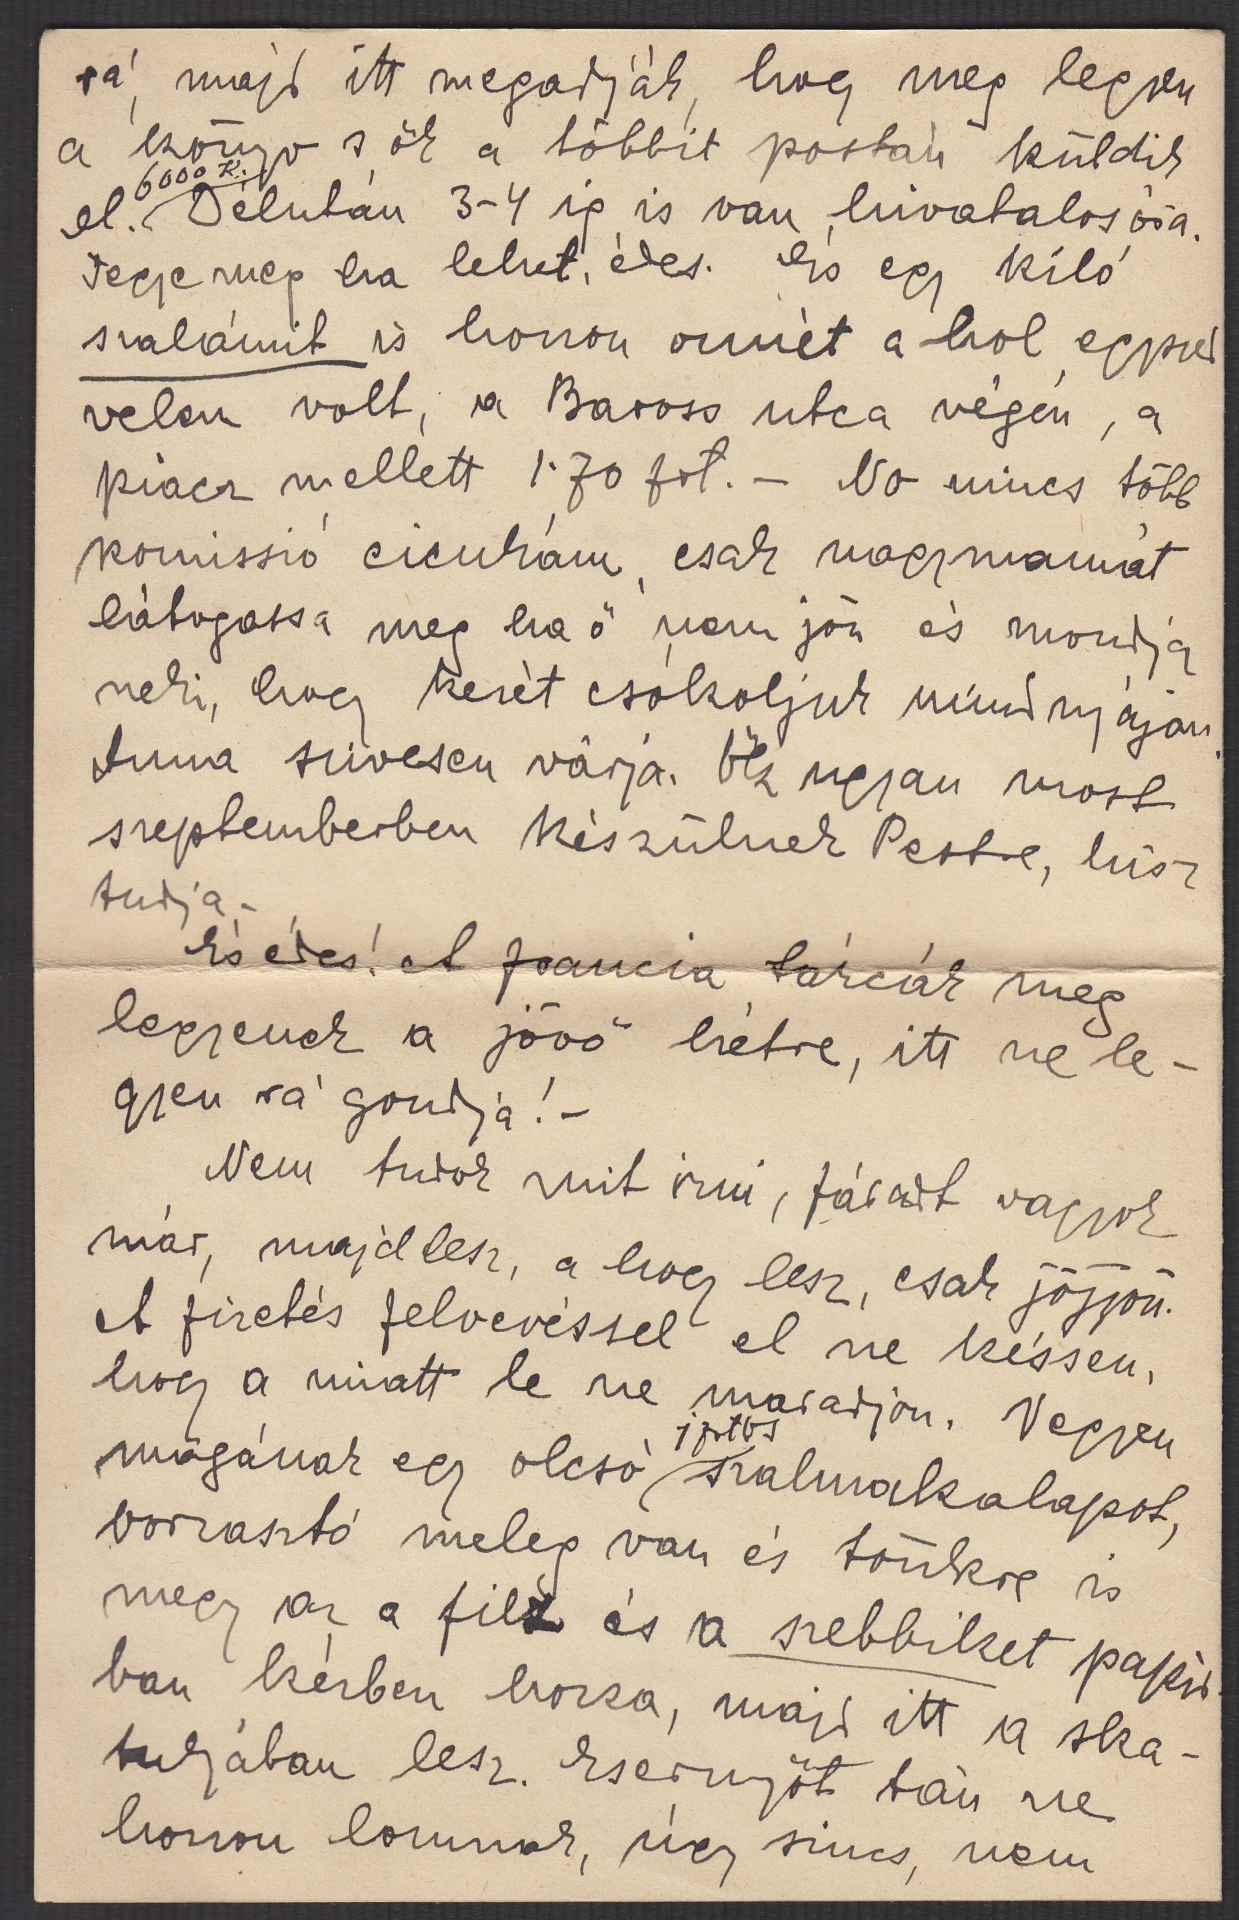 rá, majd itt megadják, hogy meg legyen
a könyv s ők a többit postán küldik
6000 K.
el. Délután 3-4 ig is van hivatalos óra.
Tegye meg ha lehet, édes. És egy kiló
szalámit is hozzon onnét a hol egyszer
velem volt, a Baross utca végén, a
piacz mellett 1.70 frt. – No nincs több
komissió cicukám, csak nagymamát
látogassa meg ha ő nem jön és mondja
neki, hogy kezét csókoljuk mindnyájan.
Anna szivesen várja. Ők ugyan most
szeptemberben készülnek Pestre, hisz
tudja –
És édes! A francia tárcák meg
legyenek a jövő hétre, itt ne le-
gyen rá gondja! –
Nem tudok mit irni, fáradt vagyok
már, majd lesz, a hogy lesz, csak jöjjön.
A fizetés felvevéssel el ne késsen,
hogy a miatt le ne maradjon. Vegyen
magának egy olcsó 1 frtos szalmakalapot,
borzasztó meleg van és tönkre is
megy az a filz és a szebbiket papir-
ban kézben hozza, majd itt a ska-
tulyában lesz. Esernyőt tán ne
hozzon lomnak, úgy sincs, nem